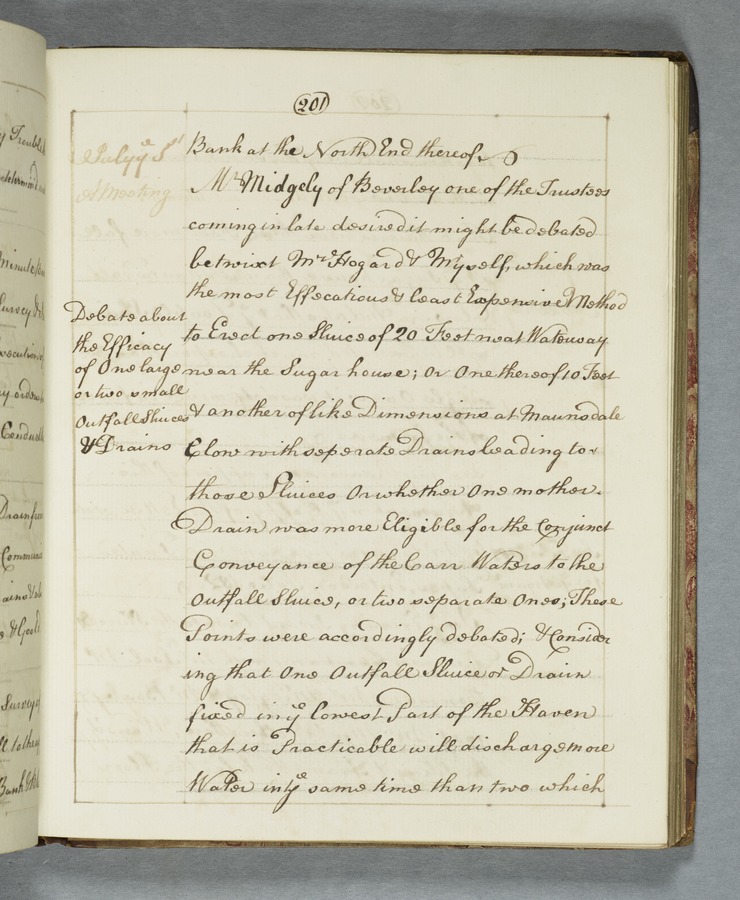 201
July ye 8th
A Meeting
Bank at the North End thereof.
Mr Midgely of Beverley one of the Trustees
coming in late desired it might be debated
betwixt Mr Hogard & Myself, which was
the most Effecatious & least Expensive Method
Debate about
the Efficacy
of One large
or two small
Outfall Sluices
& Drains
to Erect one Sluice of 20 Feet neat Waterway
near the Sugar house; Or One thereof 10 Feet
& another of like Dimensions at Maunsdale
Clow with seperate Drains leading to
those Sluices Or whether One mother
Drain was more Eligible for the Conjunct
Conveyance of the Carr Waters to the
Outfall Sluice, or two separate Ones; These
Points were accordingly debated; & Consider
ing that One Outfall Sluice or Drain
fixed in ye lowest Part of the Haven
that is Practicable will discharge more
Water in ye same time than two which